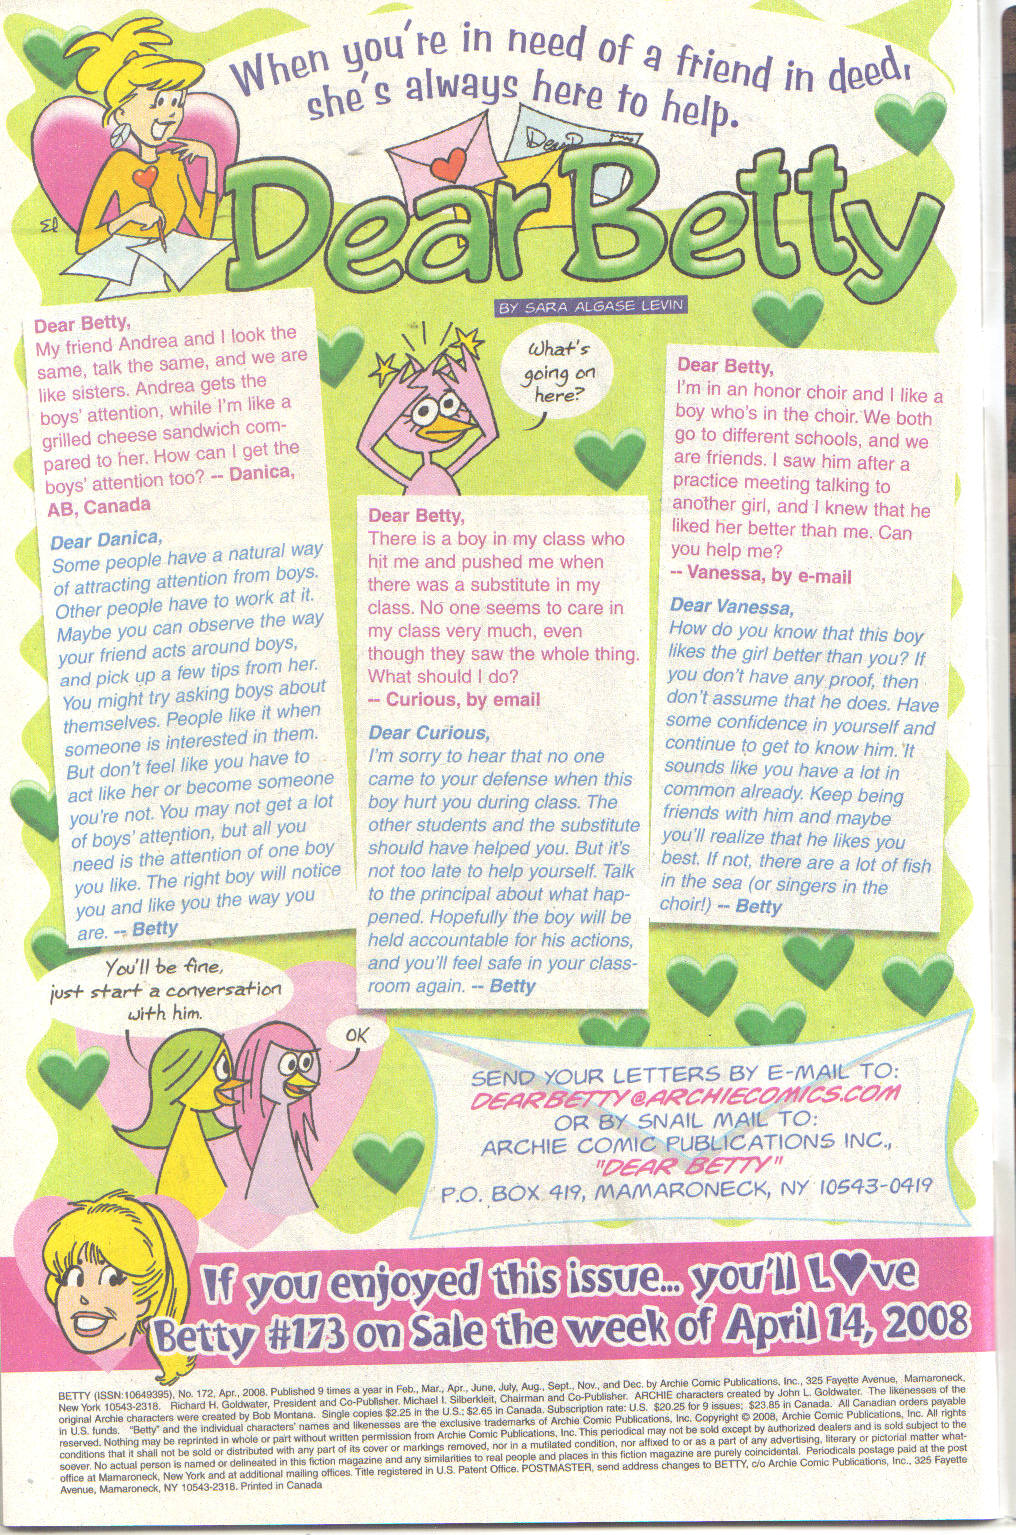 When you're in need of a friend in deed,
she's always here to help.
Dear Betty
BY SARA ALGASE LEVIN
Dear Betty,
My friend Andrea and I look the
same, talk the same, and we are
like sisters. Andrea gets the
boys' attention, while I'm like a
grilled cheese sandwich com-
pared to her. How can I get the
boys' attention too? -- Danica,
AB, Canada
Dear Danica,
Some people have a natural way
of attracting attention from boys.
Other people have to work at it.
Maybe you can observe the way
your friend acts around boys,
and pick up a few tips from her.
You might try asking boys about
themselves. People like it when
someone is interested in them.
But don't feel like you have to
act like her or become someone
you're not. You may not get a lot
of boys' attention, but all you
need is the attention of one boy
you like. The right boy will notice
you and like you the way you
are. -- Betty
What's
going on
here?
Dear Betty,
There is a boy in my class who
hit me and pushed me when
there was a substitute in my
class. No one seems to care in
my class very much, even
though they saw the whole thing.
What should I do?
-- Curious, by email
Dear Curious,
I'm sorry to hear that no one
came to your defense when this
boy hurt you during class. The
other students and the substitute
should have helped you. But it's
not too late to help yourself. Talk
to the principal about what hap-
pened. Hopefully the boy will be
held accountable for his actions,
and you'll feel safe in your class-
room again. -- Betty
Dear Betty,
I'm in an honor choir and I like a
boy who's in the choir. We both
go to different schools, and we
are friends. I saw him after a
practice meeting talking to
another girl, and I knew that he
liked her better than me. Can
you help me?
-- Vanessa, by e-mail
Dear Vanessa,
How do you know that this boy
likes the girl better than you? If
you don't have any proof, then
don't assume that he does. Have
some confidence in yourself and
continue to get to know him. It
sounds like you have a lot in
common already. Keep being
friends with him and maybe
you'll realize that he likes you
best. If not, there are a lot of fish
in the sea (or singers in the
choir!) -- Betty
You'll be fine,
just start a conversation
with him.
OK
SEND YOUR LETTERS BY E-MAIL TO:
DEARBETTY@ARCHIECOMICS.COM
OR BY SNAIL MAIL TO:
ARCHIE COMIC PUBLICATIONS INC.,
"DEAR BETTY"
P.O. BOX 419, MAMARONECK, NY 10543-0419
If you enjoyed this issue... you'll L♥ve
Betty #173 on Sale the week of April 14, 2008
BETTY (ISSN:10649395), No. 172, Apr., 2008. Published 9 times a year in Feb., Mar., Apr., June, July, Aug., Sept., Nov., and Dec. by Archie Comic Publications, Inc., 325 Fayette Avenue, Mamaroneck,
New York 10543-2318. Richard H. Goldwater, President and Co-Publisher. Michael I. Silberkleit, Chairman and Co-Publisher. ARCHIE characters created by John L. Goldwater. The likenesses of the
original Archie characters were created by Bob Montana. Single copies $2.25 in the U.S.; $2.65 in Canada. Subscription rate: U.S. $20.25 for 9 issues; $23.85 in Canada. All Canadian orders payable
in U.S. funds. "Betty" and the individual characters' names and likenesses are the exclusive trademarks of Archie Comic Publications, Inc. Copyright © 2008, Archie Comic Publications, Inc. All rights
reserved. Nothing may be reprinted in whole or part without written permission from Archie Comic Publications, Inc. This periodical may not be sold except by authorized dealers and is sold subject to the
conditions that it shall not be sold or distributed with any part of its cover or markings removed, nor in a mutilated condition, nor affixed to or as a part of any advertising, literary or pictorial matter what-
soever. No actual person is named or delineated in this fiction magazine and any similarities to real people and places in this fiction magazine are purely coincidental. Periodicals postage paid at the post
office at Mamaroneck, New York and at additional mailing offices. Title registered in U.S. Patent Office. POSTMASTER, send address changes to BETTY, c/o Archie Comic Publications, Inc., 325 Fayette
Avenue, Mamaroneck, NY 10543-2318. Printed in Canada